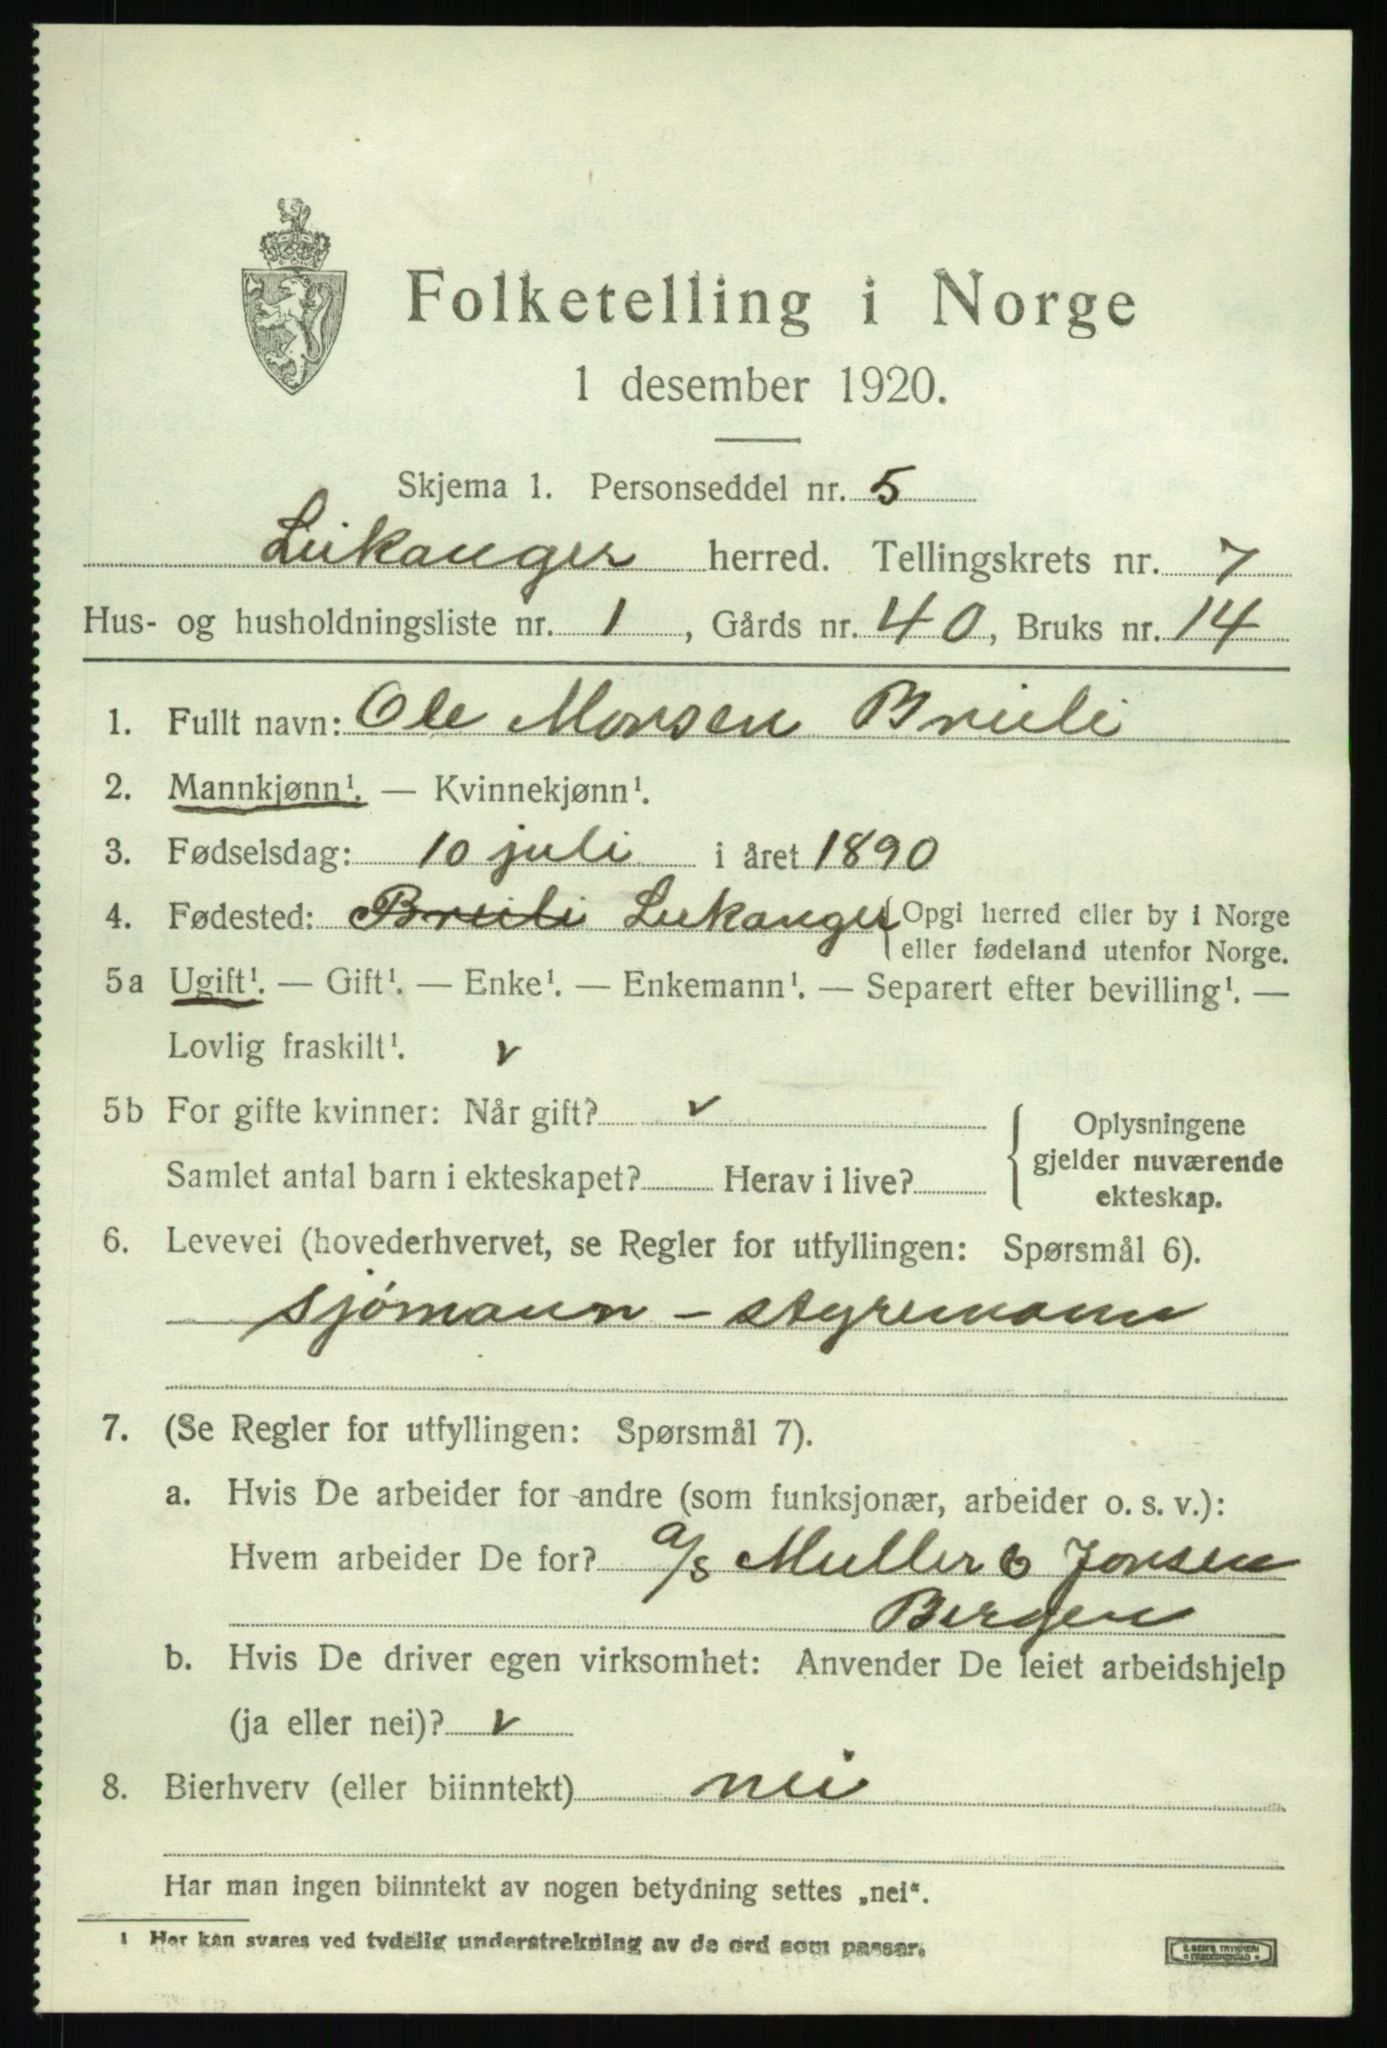 Folketelling i Norge
1 desember 1920.
Skjema 1. Personseddel nr. 5
Leikanger herred. Tellingskrets nr. 7
Hus- og husholdningsliste nr. 1, Gårds nr. 40, Bruks nr. 14
1. Fullt navn: Ole Monsen Brieli
2. Mannkjønn¹. — Kvinnekjønn¹.
3. Fødselsdag: 10 juli i året 1890
4. Fødested: Brieli Leikanger {Opgi herred eller by i Norge
eller fødeland utenfor Norge.
5a Ugift¹. — Gift¹. — Enke¹. — Enkemann¹. — Separert efter bevilling¹. —
Lovlig fraskilt¹. v
5b For gifte kvinner: Når gift? v
Samlet antal barn i ekteskapet? Herav i live?
Oplysningene
gjelder nuværende
ekteskap.
6. Levevei (hovederhvervet, se Regler for utfyllingen: Spørsmål 6).
sjómann - styremann
7. (Se Regler for utfyllingen: Spørsmål 7).
a. Hvis De arbeider for andre (som funksjonær, arbeider o. s. v.):
Hvem arbeider De for? a/s Muller & Jonsen
Bergen
b. Hvis De driver egen virksomhet: Anvender De leiet arbeidshjelp
(ja eller nei)? v
8. Bierhverv (eller biinntekt) nei
Har man ingen biinntekt av nogen betydning settes „nei“.
1 Her kan svares ved tydelig understrekning av de ord som passer.